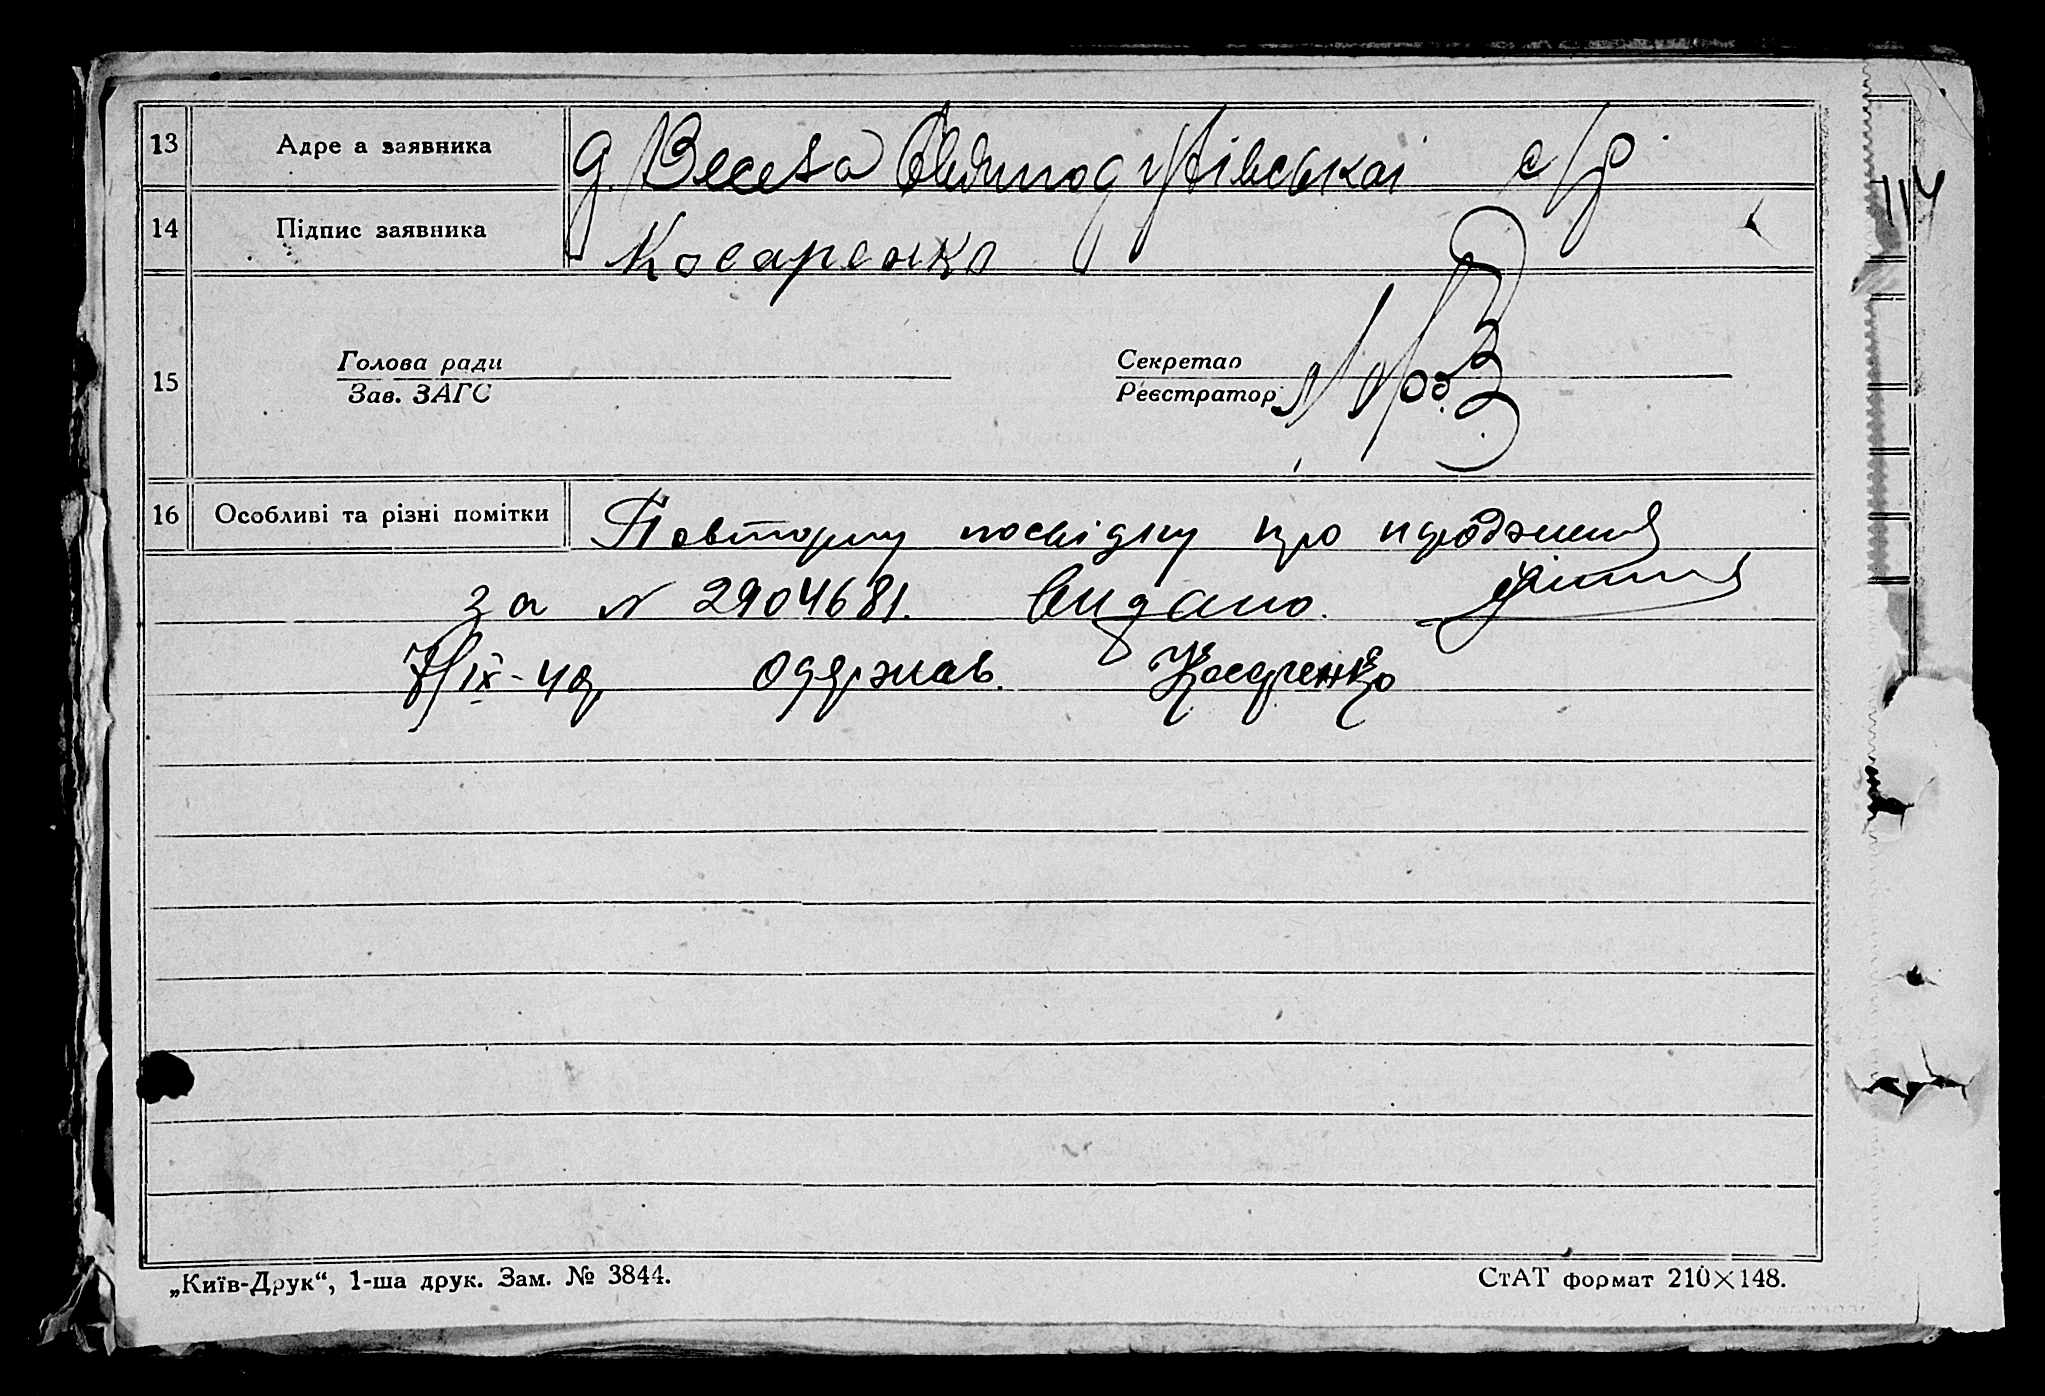 114
13 Адре а заявника д. Весела Святодухівскаі с/р.
14 Підпис заявника Косаренко
15 Голова ради Зав. ЗАГС Секретао Реєстратор
16 Особливі та різні помітки Повторну посвідку про народження
за № 2904681. видано.
7/ІХ-40р. одержав. Косаренко
„Київ-Друк“, 1-ша друк. Зам. № 3844. СтАТ формат 210×148.